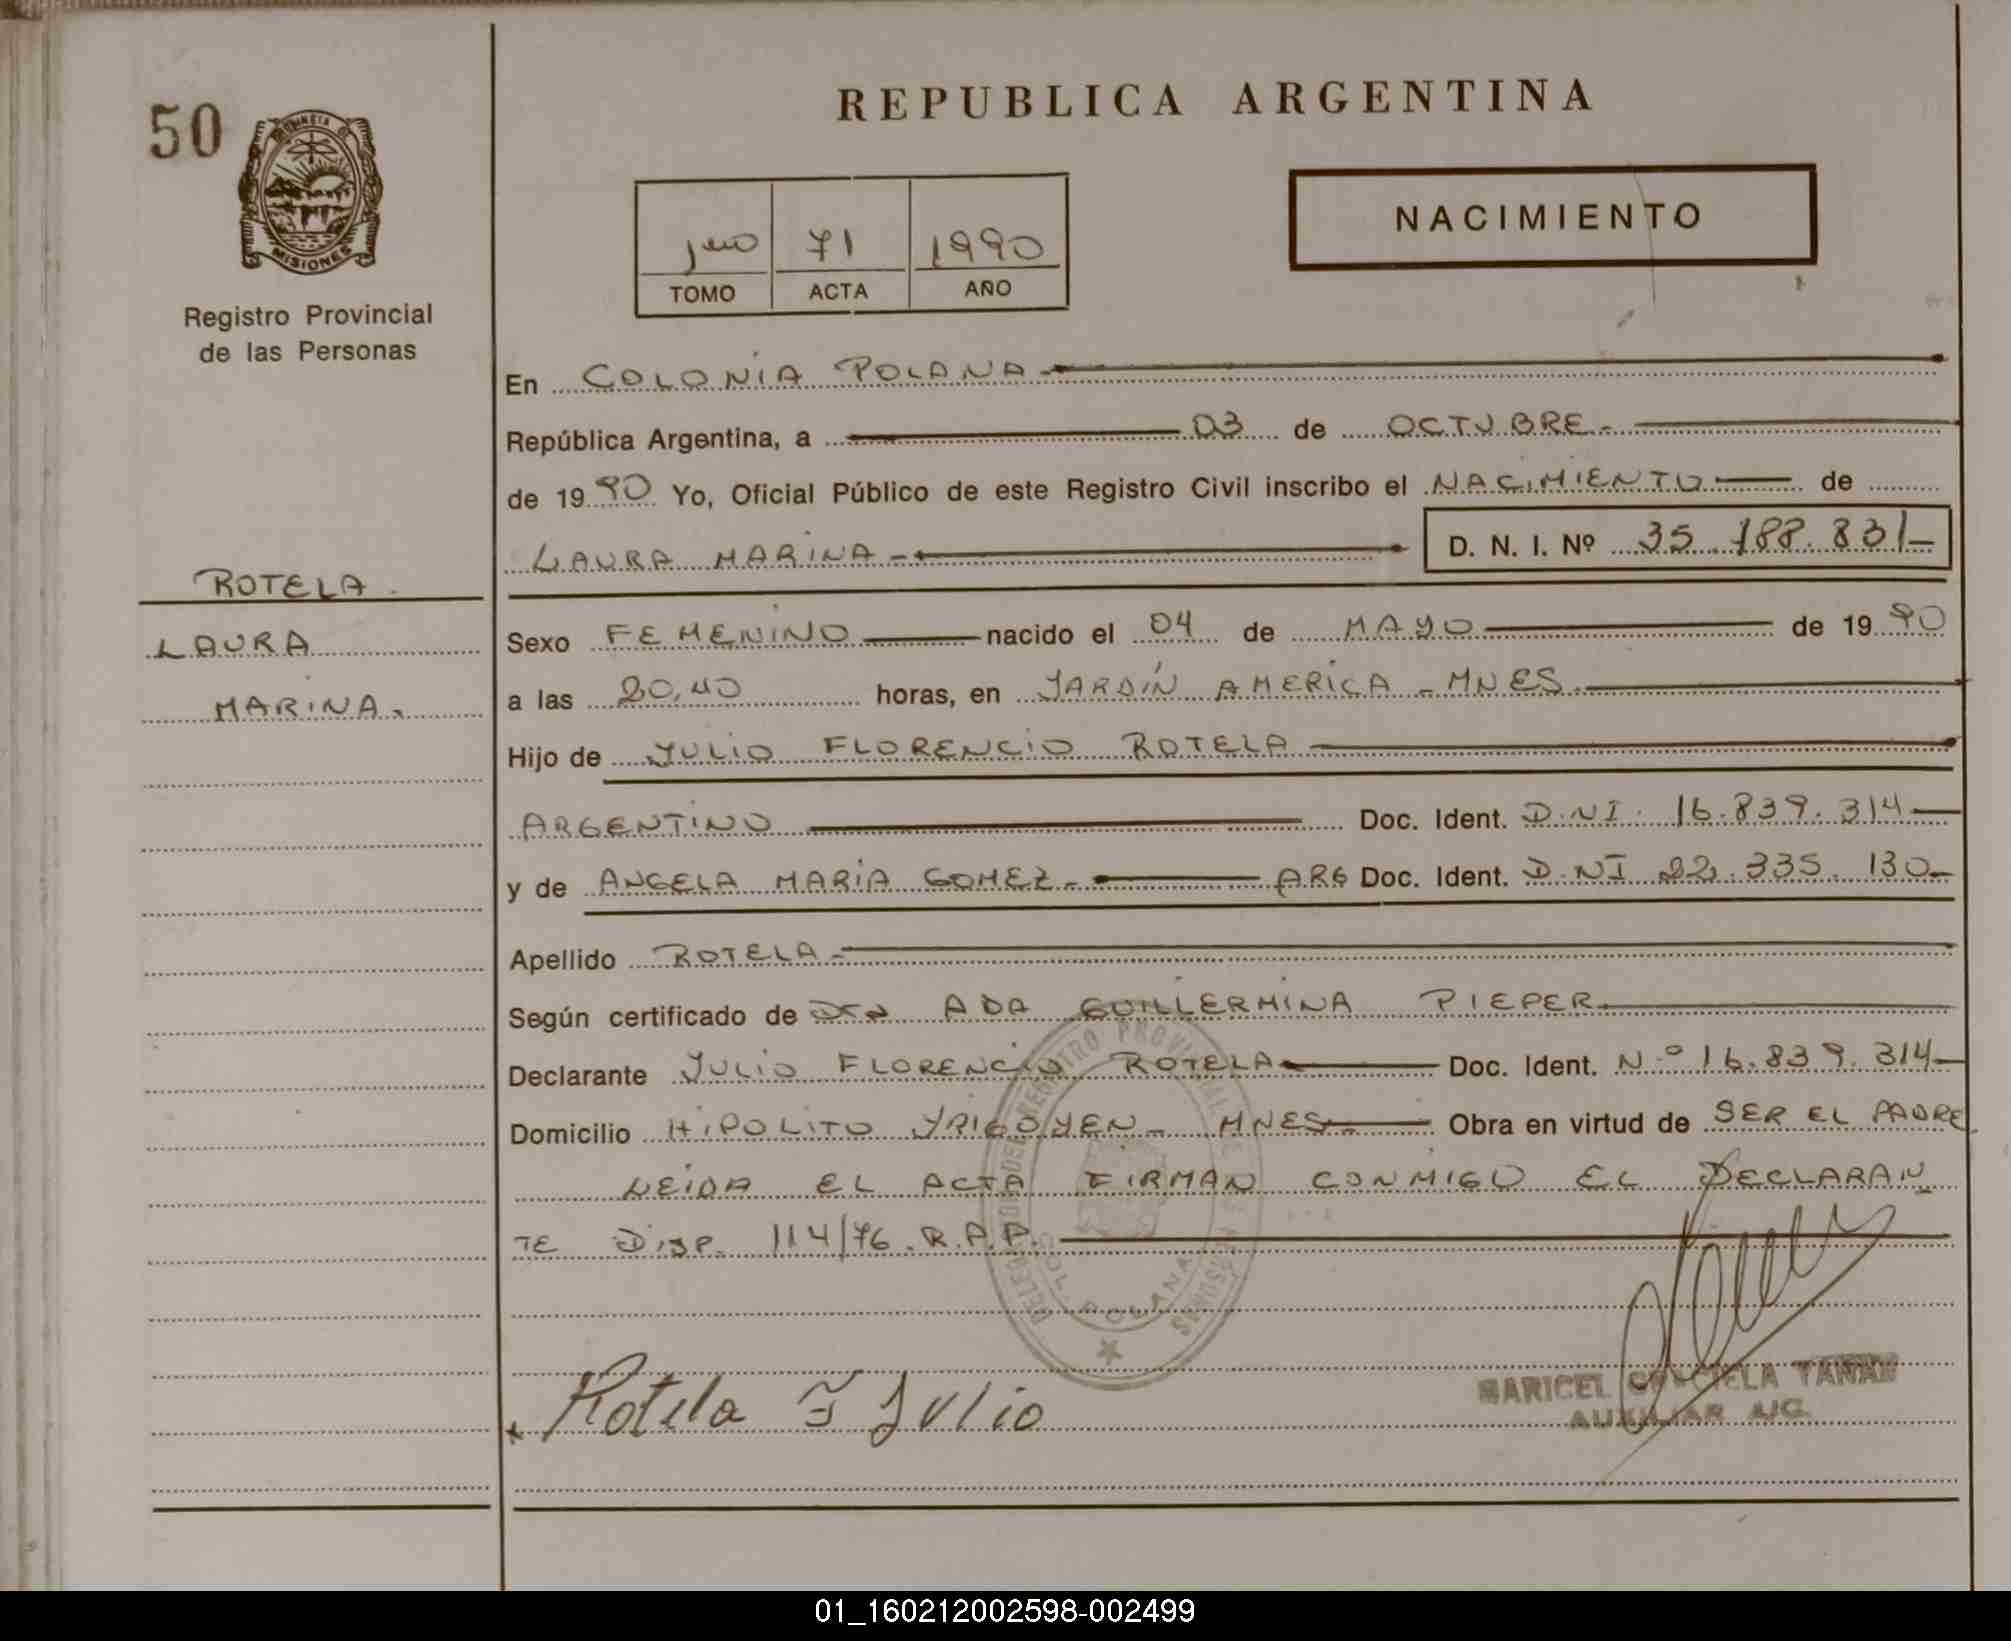 REPUBLICA ARGENTINA
50
PROVINCIA DE
MISIONES
Registro Provincial
de las Personas
1ero 71 1990
TOMO ACTA AÑO
NACIMIENTO
En COLONIA POLANA
República Argentina, a 03 de OCTUBRE.
de 1990 Yo, Oficial Público de este Registro Civil inscribo el NACIMIENTO de
LAURA MARINA - D. N. I. Nº 35.188.831-
ROTELA.
LAURA
MARINA.
Sexo FEMENINO nacido el 04 de MAYO de 1990
a las 20,40 horas, en JARDÍN AMERICA - MNES.
Hijo de JULIO FLORENCIO ROTELA
ARGENTINO Doc. Ident. D.NI. 16.839.314
y de ANGELA MARIA GOMEZ.- ARG Doc. Ident. D.NI 22.335.130-
Apellido ROTELA-
Según certificado de DRA ADA GUILLERMINA PIEPER
Declarante JULIO FLORENCIO ROTELA Doc. Ident. N.º 16.839.314-
Domicilio HIPOLITO YRIGOYEN- MNES- Obra en virtud de SER EL PADRE.
LEIDA EL ACTA FIRMAN CONMIGO EL DECLARAN
TE DISP. 114/76.R.P.P.
COL. POLANA
Rotela F Julio
MARICEL GRACIELA YANAN
AUXILIAR
01_160212002598-002499